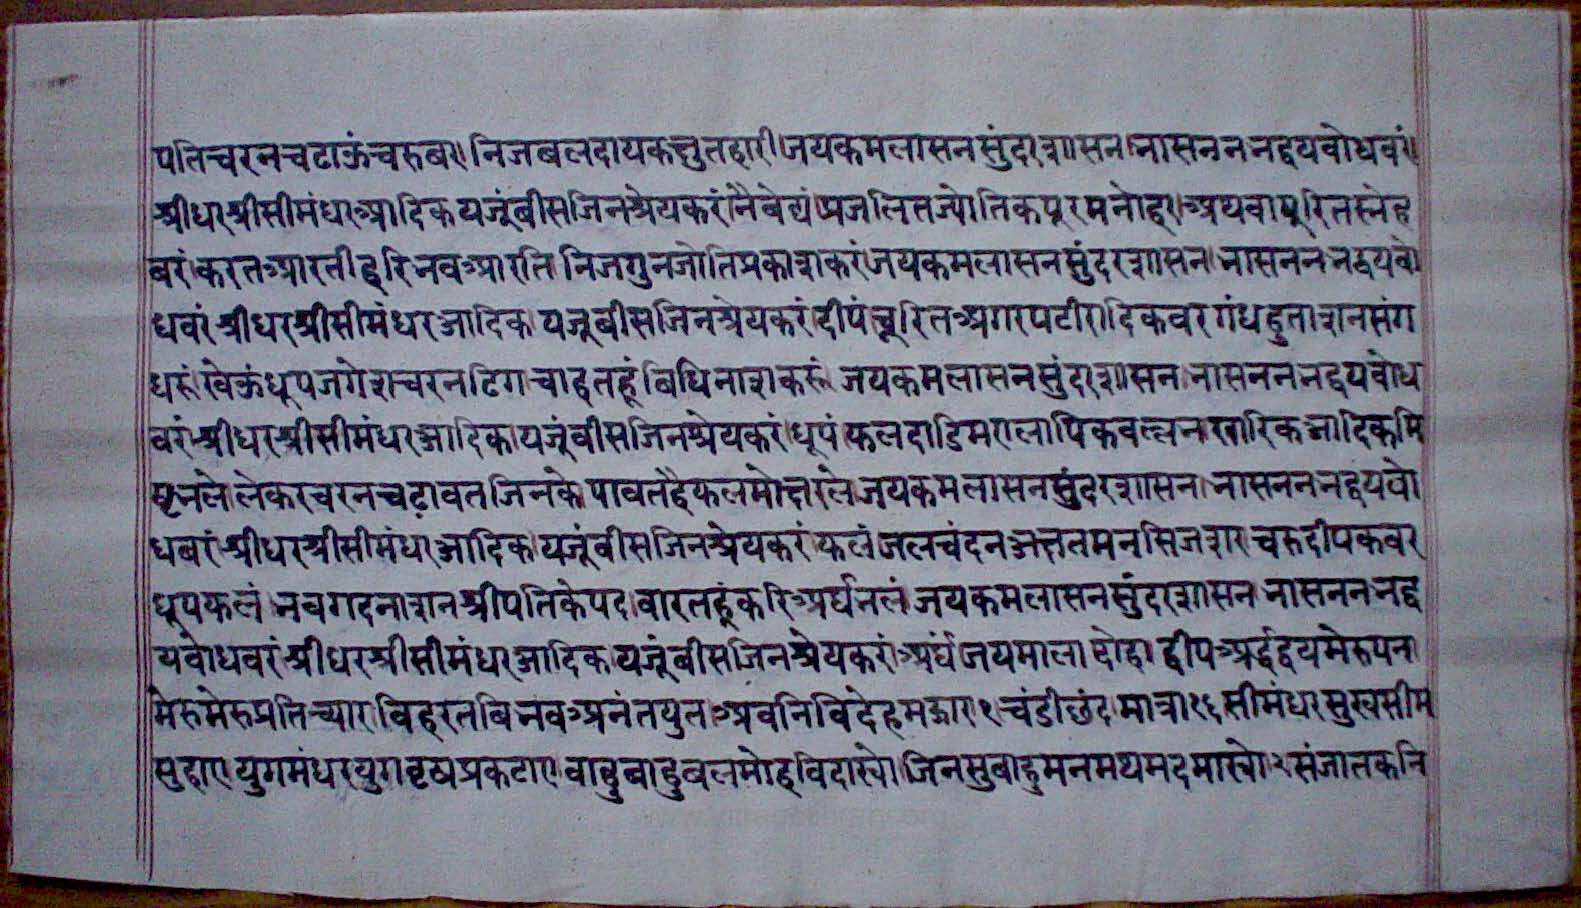 पतिचरनचढाऊंचरुबर।निजबलदायकक्षुतहारी।जयकमलासनसुंदरशासन।नासनननद्वयवोधवरं।
श्रीधरश्रीसीमंधरआदिकयजूंबीसजिनश्रेयकरं।नैबेद्यं।प्रजलितज्योतिकपूरमनोहर।अथवापूरितस्नेह
बरं।करतआरतीहरिनवआरति।निजगुनजोतिप्रकाशकरं।जयकमलासनसुंदरशासन।नासनननद्वयवो
धवरं।श्रीधरश्रीसीमंधरआदिक।यजूबीसजिनश्रेयकरं।दीपं।चूरितअगरपटीरादिकवरगंधहुताशनसंग
धरूं।खेऊंधूपजगेशचरनढिग।चाहतहूंबिधिनाशकरूं।जयकमलासनसुंदरशासन।नासनननद्वयवोध
वरं।श्रीधरश्रीसीमंधरआदिक।यजूंवीसजिनश्रेयकरं।धूपं।फलदाडिमएलापिकवल्लनखारिकआदिकमि
ष्टनले।लेकरचरनचढ़ावतजिनके।पावतहैफलमोक्षरले।जयकमलासनसुंदरशासन।नासनननद्वयवो
धबरं।श्रीधरश्रीसीमंधरआदिक।यजूंवीसजिनश्रेयकरं।फलं।जलचंदनअक्षतमनसिजशर।चरुदीपकवर
धूपफलं।नवगदनाशनश्रीपतिकेपद।वारतहूंकरिअर्घनलं।जयकमलासनसुंदरशासन।नासनननद्व
यवोधवरं।श्रीधरश्रीसीमंधरआदिक।यजूंबीसजिनश्रेयकरं।अर्घं।जयमाला।दोहा।द्वीपअर्द्धद्वयमेरुपन।
मेरुमेरुप्रतिच्यार।विहरतबिनवअनंतयुत।अवनिविदेहमझार।१।चंडीछंद।मात्रा१६।सीमंधरसुखसीम
सुहाए।युगमंधरयुगवृषप्रकटाए।वाहुबाहुबलमोहविदास्यो।जिनसुबाहुमनमथमदमास्यो।२।संजातकनि